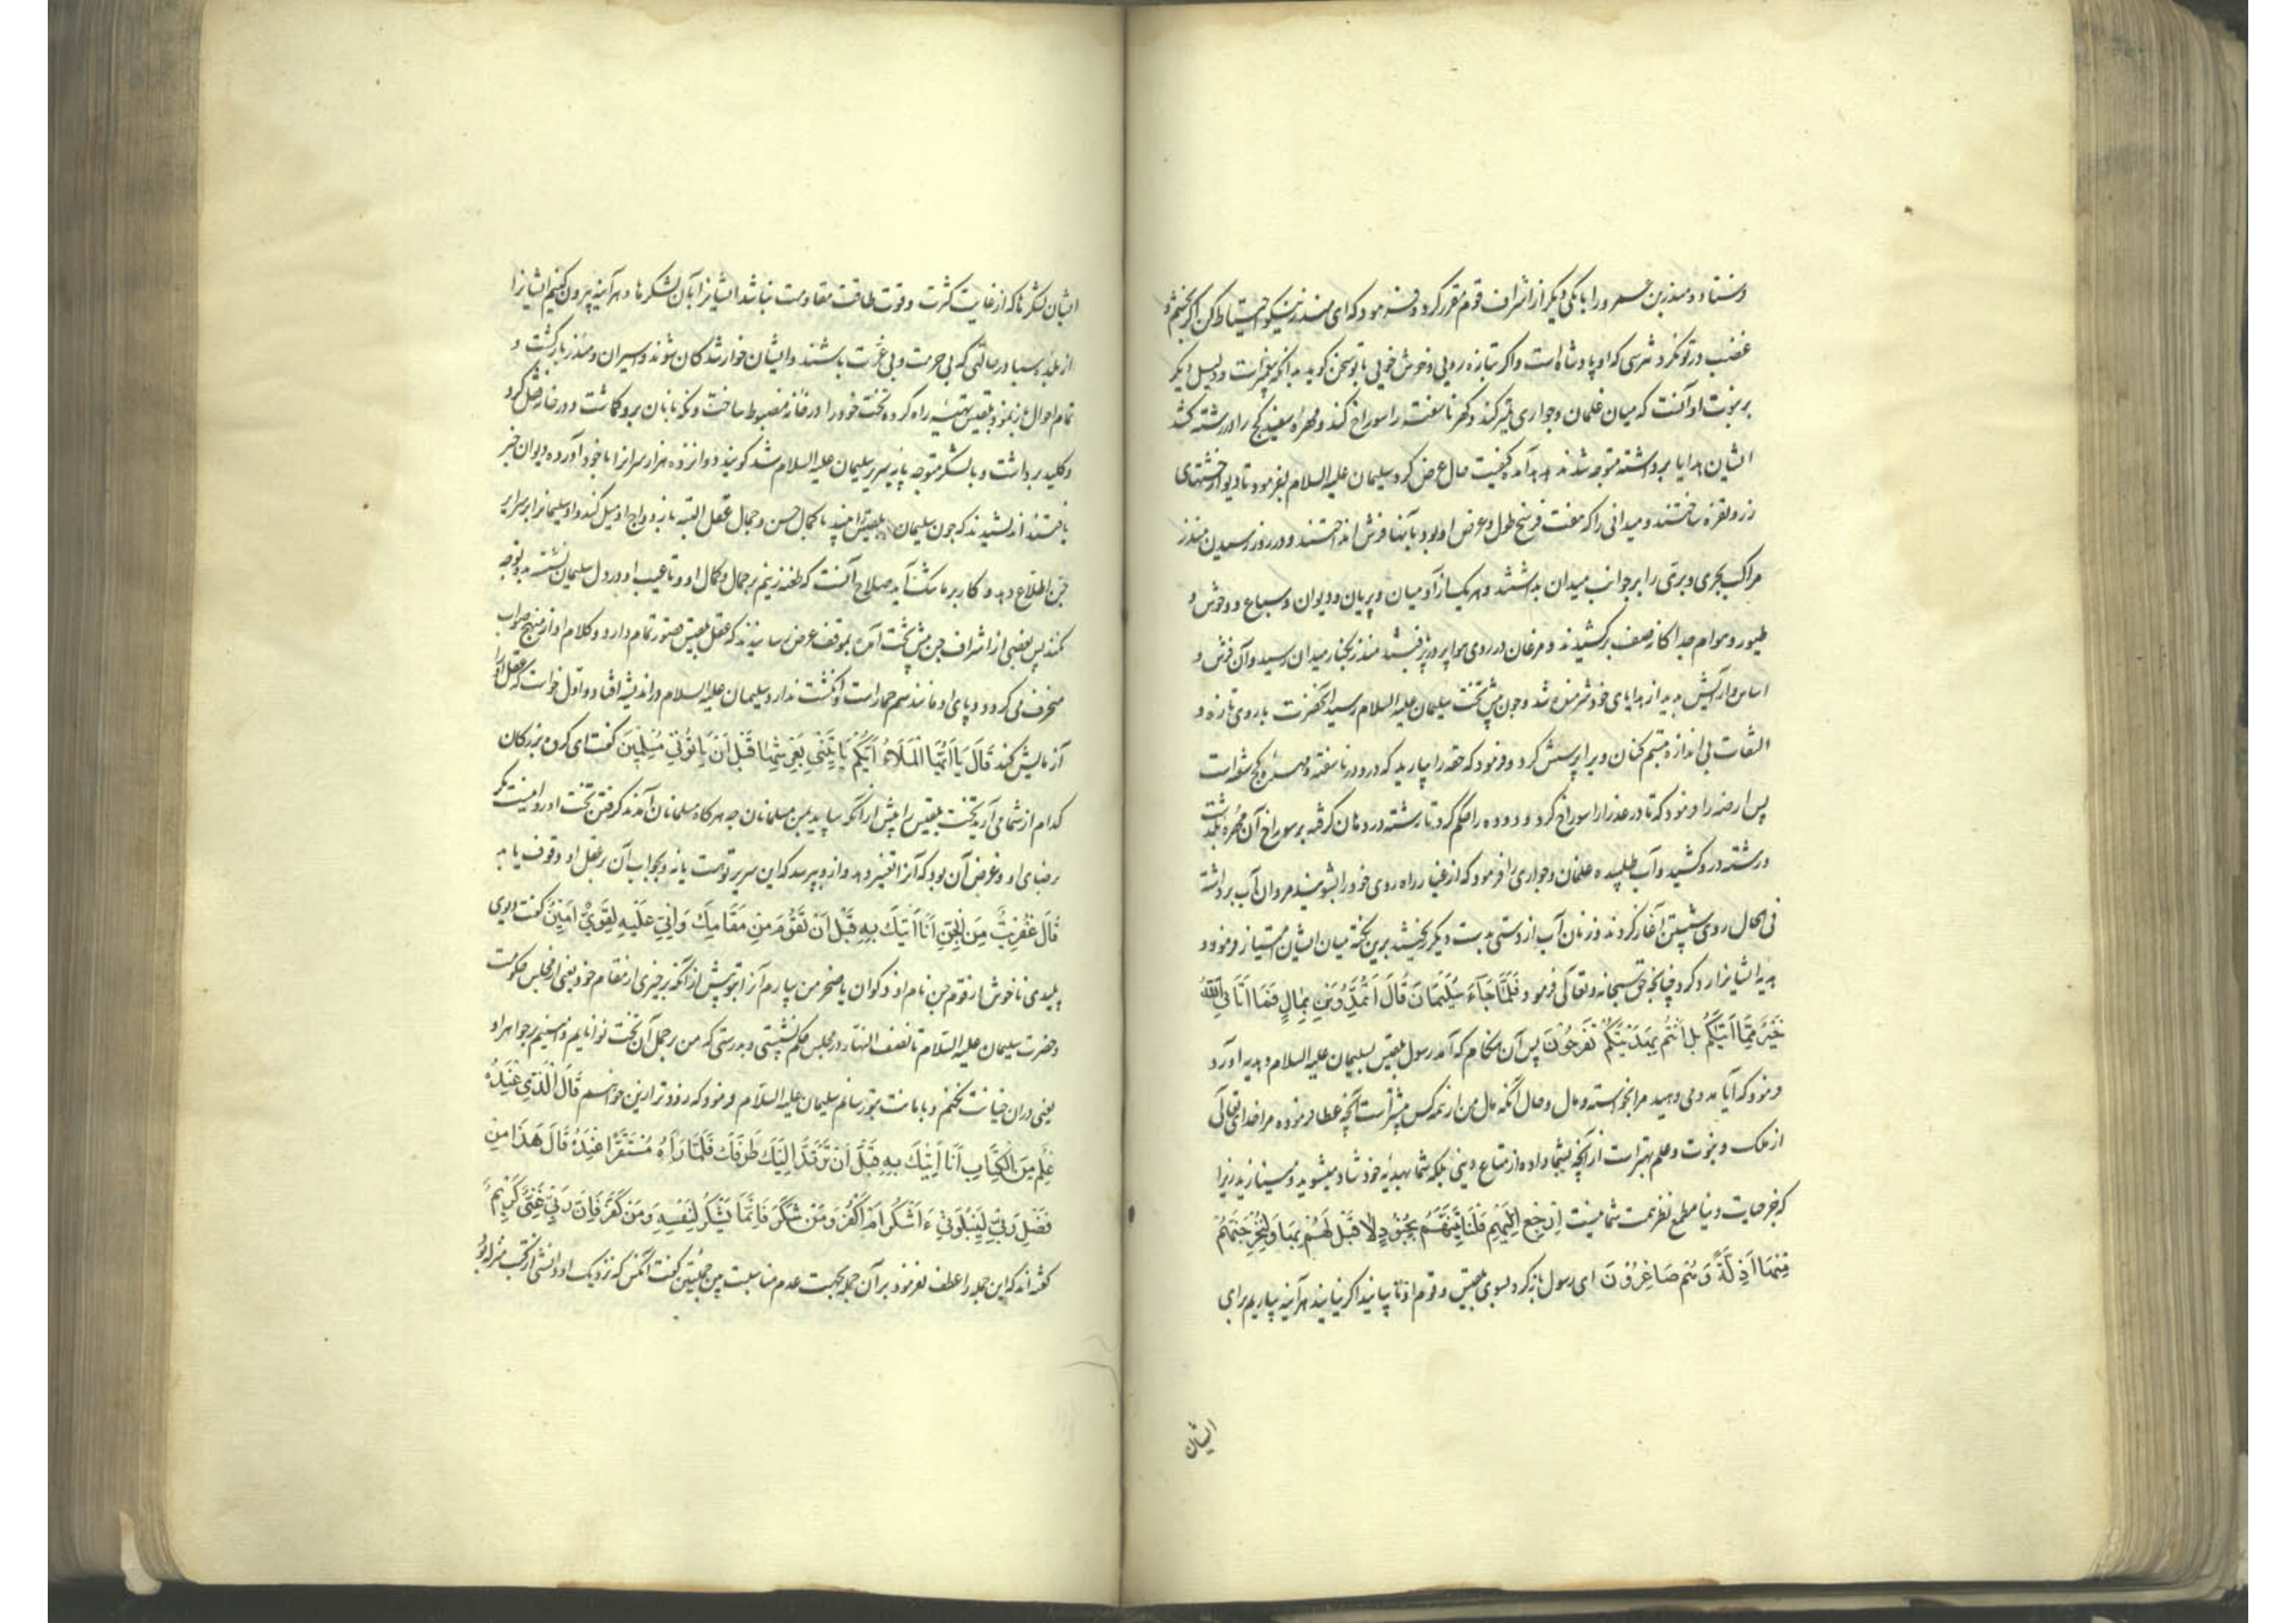 فرستاد و منذر بن عمرو را با یکی دیگر از اشراف قوم مقرر کرد و فرمود که ای منذر نیکو احتیاط کن اگر بخشم و
غضب در تو نکرد مترس که او پادشاه است و اگر بتازه رویی و خوش خویی با تو سخن کوید بدانکه پیغمبرست و دلیل دیکر
بر نبوت او آنست که میان غلمان و جواری تمیز کند و کهر ناسفته را سوراخ کند و مهره سفید کج را در رشته کشد
ایشان هدایا برداشته متوجه شدند هدهد آمده کیفیت حال عرض کرد سلیمان علیه السلام بفرمود تا دیو از خشتهای
زر و نقره ساختند و میدانی را که هفت فرسخ طول و عرض او بود بآنها فرش انداختند و در روز رسیدن منذر
مراکب بحری و بری را بر جوانب میدان بداشتند و هر یک از آدمیان و پریان و دیوان و سباع و وحوش و
طیور و هوام جداکانه صف برکشیدند و مرغان در روی هوا پر در پر بافتند منذر بکنار میدان رسید و آن فرش و
اساس و آرایش بدید از هدایای خود شرمنده شد و چون پیش تخت سلیمان علیه السلام رسید آنحضرت با روی تازه و
التفات بی اندازه تبسم کنان ویرا پرسش کرد و فرمود که حقه را بیارید که درو در ناسفته و مهره کج سفته است
پس ارضه را فرمود که تا در عذرا را سوراخ کرد و دوده را حکم کرد تا رشته در دهان کرفته بر سوراخ آن مهره بگذشت
و رشته در کشید و آب طلبیده غلمان و جواری را فرمود که از غبار راه روی خود را بشویند مردان آب برداشته
فی الحال روی شستن آغاز کردند و زنان آب از دستی بدست دیکر ریختند برین نکته میان ایشان امتیاز فرمود و
هدیه ایشانرا رد کرد چنانچه حق سبحانه و تعالی فرمود فَلَمَّا جَآءَ سُلَیْمَانَ قَالَ اَتُمِدُّوْنَنِ بِمَالٍ فَمَا اٰتَانِیَ اللّٰهُ
خَیْرٌ مِمَّا اٰتٰیکُمْ بَلْ اَنْتُمْ بِهَدِیَّتِکُمْ تَفْرَحُوْنَ پس آن هنکام که آمد رسول بلقیس بسلیمان علیه السلام و هدیه آورد
فرمود که آیا مدد می دهید مرا بخواسته و مال و حال آنکه مال من از همه کس بیشترست آنچه عطا فرموده مرا خدای تعالی
از ملک و نبوت و علم بهترست از آنچه بشما داده از متاع دنیی بلکه شما بهدیه خود شاد میشوید و مینازید زیرا
که جز حیات دنیا مطمح نظر همت شما نیست اِرْجِعْ اِلَیْهِمْ فَلَنَاْتِیَنَّهُمْ بِجُنُوْدٍ لَا قِبَلَ لَهُمْ بِهَا وَلَنُخْرِجَنَّهُمْ
مِنْهَا اَذِلَّةً وَهُمْ صَاغِرُوْنَ ای رسول بازکرد بسوی بلقیس و قوم او تا بیایند اکر نیایند هرآینه بیاریم برای
ایشان
ایشان لشکرها که از غایت کثرت و قوت طاقت مقاومت نباشد ایشانرا بآن لشکرها و هرآینه بیرون کنیم ایشانرا
از بلده سبا در حالتی که بی حرمت و بی عزت باشند و ایشان خوار شدکان شوند و اسیران و منذر بازکشت و
تمام احوال باز نمود بلقیس تهیه راه کرده تخت خود را در خانه مضبوط ساخت و نکاهبانان برو کماشت و در خانه قفل کرد
و کلید برداشت و با لشکر متوجه پایه سریر سلیمان علیه السلام شد کویند دوازده هزار سرانرا با خود آورد دیوان خبر
یافتند اندیشیدند که چون سلیمان بلقیس را ببیند با کمال حسن و جمال عقل البته بازدواج او میل کند و او سلیمانرا بر اسرار
جن اطلاع دهد و کار بر ما سخت آید صلاح آنست که طعنه زنیم بر جمال و کمال او و تا عیب او در دل سلیمان نشسته بدو توجه
نکند پس بعضی از اشراف جن پیش تخت آمده بموقف عرض رسانیدند که عقل بلقیس قصور تمام دارد و کلام او از منهج صواب
منحرف می کردد و پای او مانند سم حمارست و انکشت ندارد سلیمان علیه السلام در اندیشه افتاد و اول خواست که عقل او را
آزمایش کند قَالَ یَا اَیُّهَا الْمَلَاُ اَیُّکُمْ یَاْتِیْنِیْ بِعَرْشِهَا قَبْلَ اَنْ یَاْتُوْنِیْ مُسْلِمِیْنَ کفت ای کروه بزرکان
کدام از شما می آرید تخت بلقیس را پیش از آنکه بیاید بمن مسلمانان چه هرکاه مسلمانان آمدند کرفتن تخت او روا نیست مکر
برضای او و غرض آن بود که آنرا تغییر دهد و ازو پرسد که این سریر توست یا نه و بجواب آن بر عقل او وقوف یابد
قَالَ عِفْرِیْتٌ مِنَ الْجِنِّ اَنَا اٰتِیْکَ بِهِ قَبْلَ اَنْ تَقُوْمَ مِنْ مَقَامِکَ وَاِنِّیْ عَلَیْهِ لَقَوِیٌّ اَمِیْنٌ کفت دیوی
پلیدی ناخوش از قوم جن نام او ذکوان یا صخر من بیارم آنرا بتو پیش از آنکه برخیزی از مقام خود یعنی از مجلس حکومت
و حضرت سلیمان علیه السلام تا نصف النهار در مجلس حکم نشستی و بدرستی که من بر حمل آن تخت توانایم و امینم بر جواهر او
یعنی در آن خیانت نکنم و بامانت بتو رسانم سلیمان علیه السلام فرمود که زودتر ازین خواهم قَالَ الَّذِیْ عِنْدَهُ
عِلْمٌ مِنَ الْکِتَابِ اَنَا اٰتِیْکَ بِهِ قَبْلَ اَنْ یَرْتَدَّ اِلَیْکَ طَرْفُکَ فَلَمَّا رَاٰهُ مُسْتَقِرًّا عِنْدَهُ قَالَ هٰذَا مِنْ
فَضْلِ رَبِّیْ لِیَبْلُوَنِیْ ءَاَشْکُرُ اَمْ اَکْفُرُ وَمَنْ شَکَرَ فَاِنَّمَا یَشْکُرُ لِنَفْسِهِ وَمَنْ کَفَرَ فَاِنَّ رَبِّیْ غَنِیٌّ کَرِیْمٌ
کفته اند که این جمله را عطف نفرمود بر آن جمله بجهت عدم مناسبت بین جملتین کفت آنکس که نزدیک او دانشی از کتب منزله بود